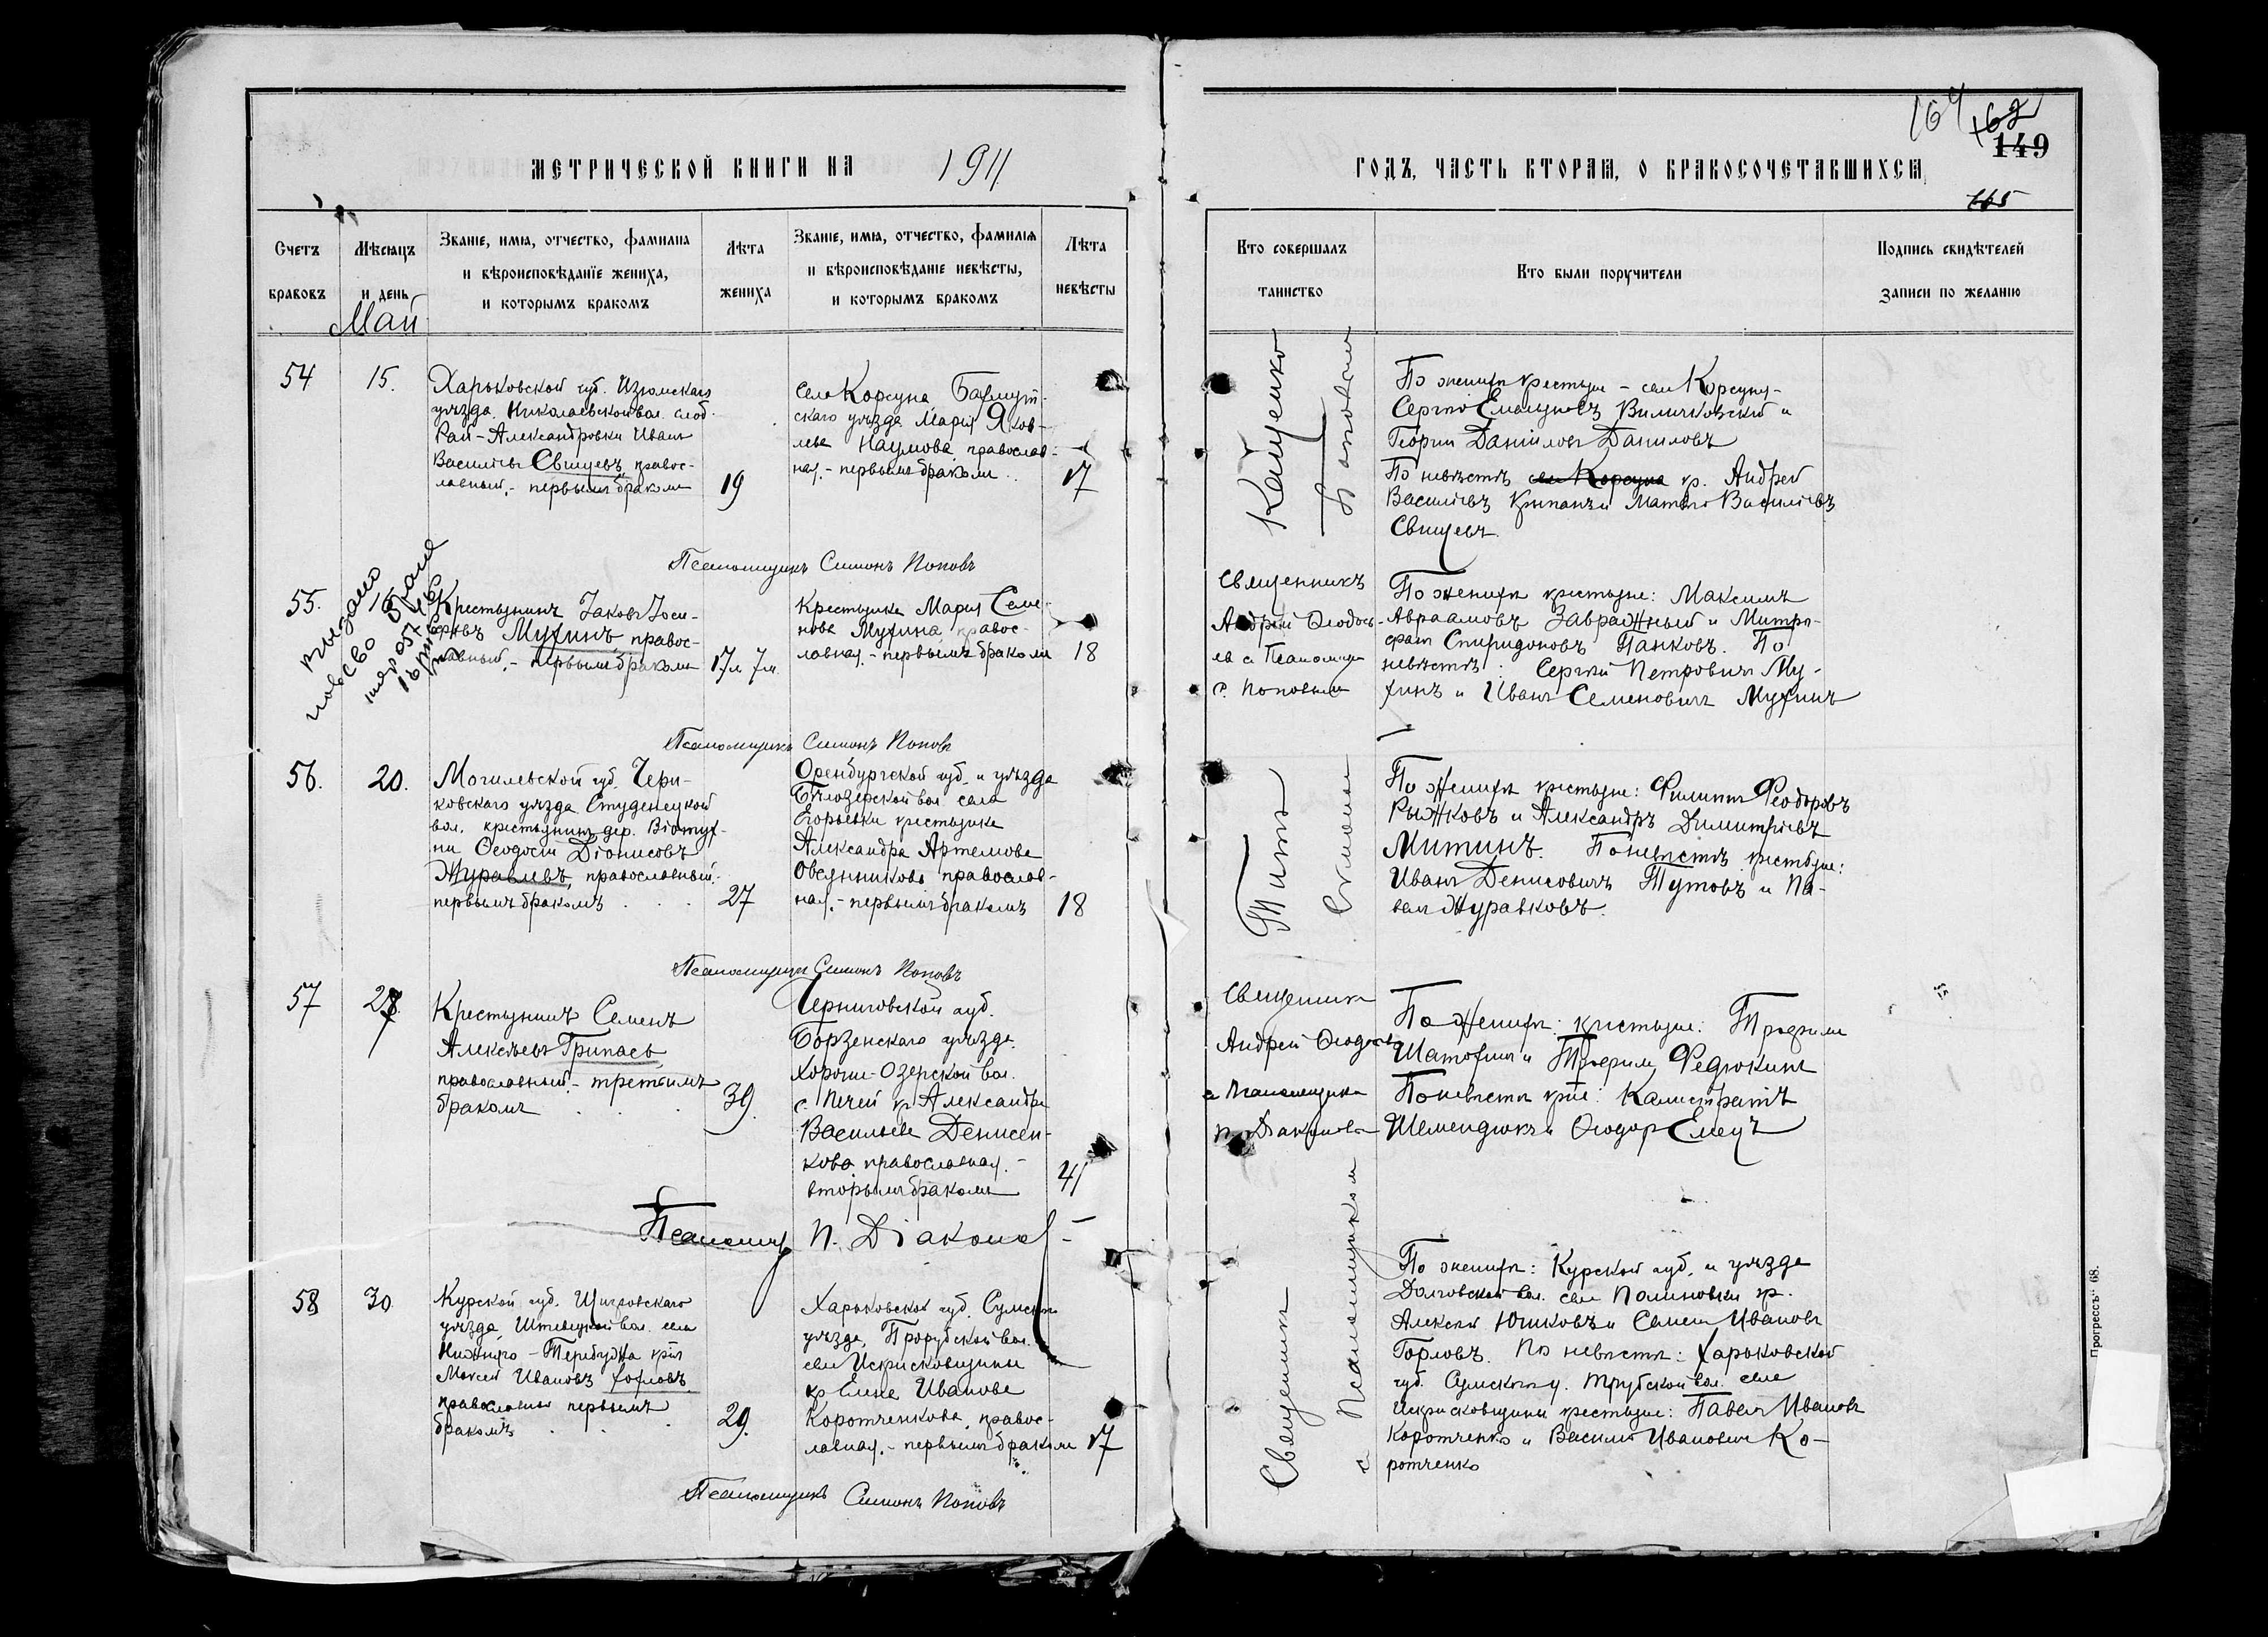 МЕТРИЧЕСКОЙ КНИГИ НА 1911
Счетъ браковъ
Мѣсяцъ и день
Званіе, имя, отчество, фамилія
и вѣроисповѣданіе жениха,
и которымъ бракомъ
Лѣта жениха
Званіе, имя, отчество, фамилія
и вѣроисповѣданіе невѣсты,
и которымъ бракомъ
Лѣта невѣсты
Май
54
15.
Харьковской губ. Изюмскаго
уѣзда Николаевской вол. слоб.
Рай-Александровки Иванъ
Василіевъ Свищевъ, правос-
лавный, - первымъ бракомъ
19
Села Корсуна Бахмут-
скаго уѣзда Марія Яков-
лева Наумова, православ-
ная. - первымъ бракомъ
17
Псаломщикъ Симонъ Поповъ
55.
15
Крестьянинъ Іаковъ Іоси-
фовъ Мухинъ, правос-
лавный, - первымъ бракомъ
17л 7м.
Крестьянка Марія Семе-
нова Мухина, правос-
лавная. - первымъ бракомъ
18
Псаломщикъ Симонъ Поповъ
56.
20.
Могилевской губ. Чери-
ковскаго уѣзда Студенецкой
вол. крестьянинъ дер.
Ѳеодосій Діонисовъ
Журавлевъ, православный.-
первымъ бракомъ
27
Оренбургской губ. и уѣзда
Бѣлозерской вол. села
Егорьевки крестьянка
Александра Артемова
Овсянникова православ-
ная. - первымъ бракомъ
18
Псаломщикъ Симонъ Поповъ
57
Крестьянинъ Семенъ
Алексѣевъ Грипасъ
православный. - третьимъ
бракомъ
39.
Черниговской губ.
Борзенскаго уѣзда.
Хороше-Озерской вол.
с. Печей кр. Александра
Васильева Денисен-
кова православная. -
вторымъ бракомъ
41
Псаломщ. П. Діаконов
58
30
Курской губ. Щигровскаго
уѣзда, вол. села
Нижняго-Теребужа кр-нъ
Моисей Ивановъ Хохловъ
православный первымъ
бракомъ
29.
Харьковской губ. Сумскаго
уѣзда, Прорубской вол.
села Искрисковщины
кр. Елена Иванова
Коротченкова, правос-
лавная. - первымъ бракомъ
17
Псаломщикъ Симонъ Поповъ
164 162
149
165
ГОДЪ, ЧАСТЬ ВТОРАЯ, О БРАКОСОЧЕТАВШИХСЯ
Кто совершалъ таинство
Кто были поручители
Подпись свидѣтелей
записи по желанію
Поповымъ
По женихѣ крестьяне - села Корсуна-
Сергій Емельяновъ Виличковскій и
Георгій Даніиловъ Даниловъ
По невѣстѣ села Корсуна кр. Андрей
Василіевъ и Матвѣй Василіевъ
Свищевъ.
Священникъ
Андрей Ѳеодось-
евъ с Псаломщи
С. Поповымъ
По женихѣ крестьяне: Максимъ
Авраамовъ Завражный и Митро-
фанъ Спиридоновъ Панковъ. По
невѣстѣ: Сергій Петровичъ Му-
хинъ и Иванъ Семеновичъ Мухинъ
По женихѣ крестьяне: Филиппъ Феодоровъ
Рыжковъ и Александръ Димитріевъ
Митинъ. По невѣстѣ крестьяне:
Иванъ Денисовичъ Тутовъ и Па-
велъ Журавковъ.
Священникъ
Андрей Ѳеодосьевъ
съ Псаломщикомъ
П. Діаконовымъ
По женихѣ: крестьяне: Трофимъ
Шатохинъ и Трофимъ Федюкинъ
По невѣстѣ кр-не: Калистратъ
Шемендюкъ и Ѳеодоръ Емецъ
Священникъ
съ Псаломщикомъ
По женихѣ: Курской губ. и уѣзда
Долговской вол. села Полиновки кр.
Алексѣй Юшковъ и Семенъ Ивановъ
Горловъ. По невѣстѣ: Харьковской
губ. Сумского у. Трубской вол. села
Искрисковщины крестьяне: Павелъ Ивановъ
Коротченко и Василій Ивановичъ Ко-
ротченко
Прогрессъ" 68.